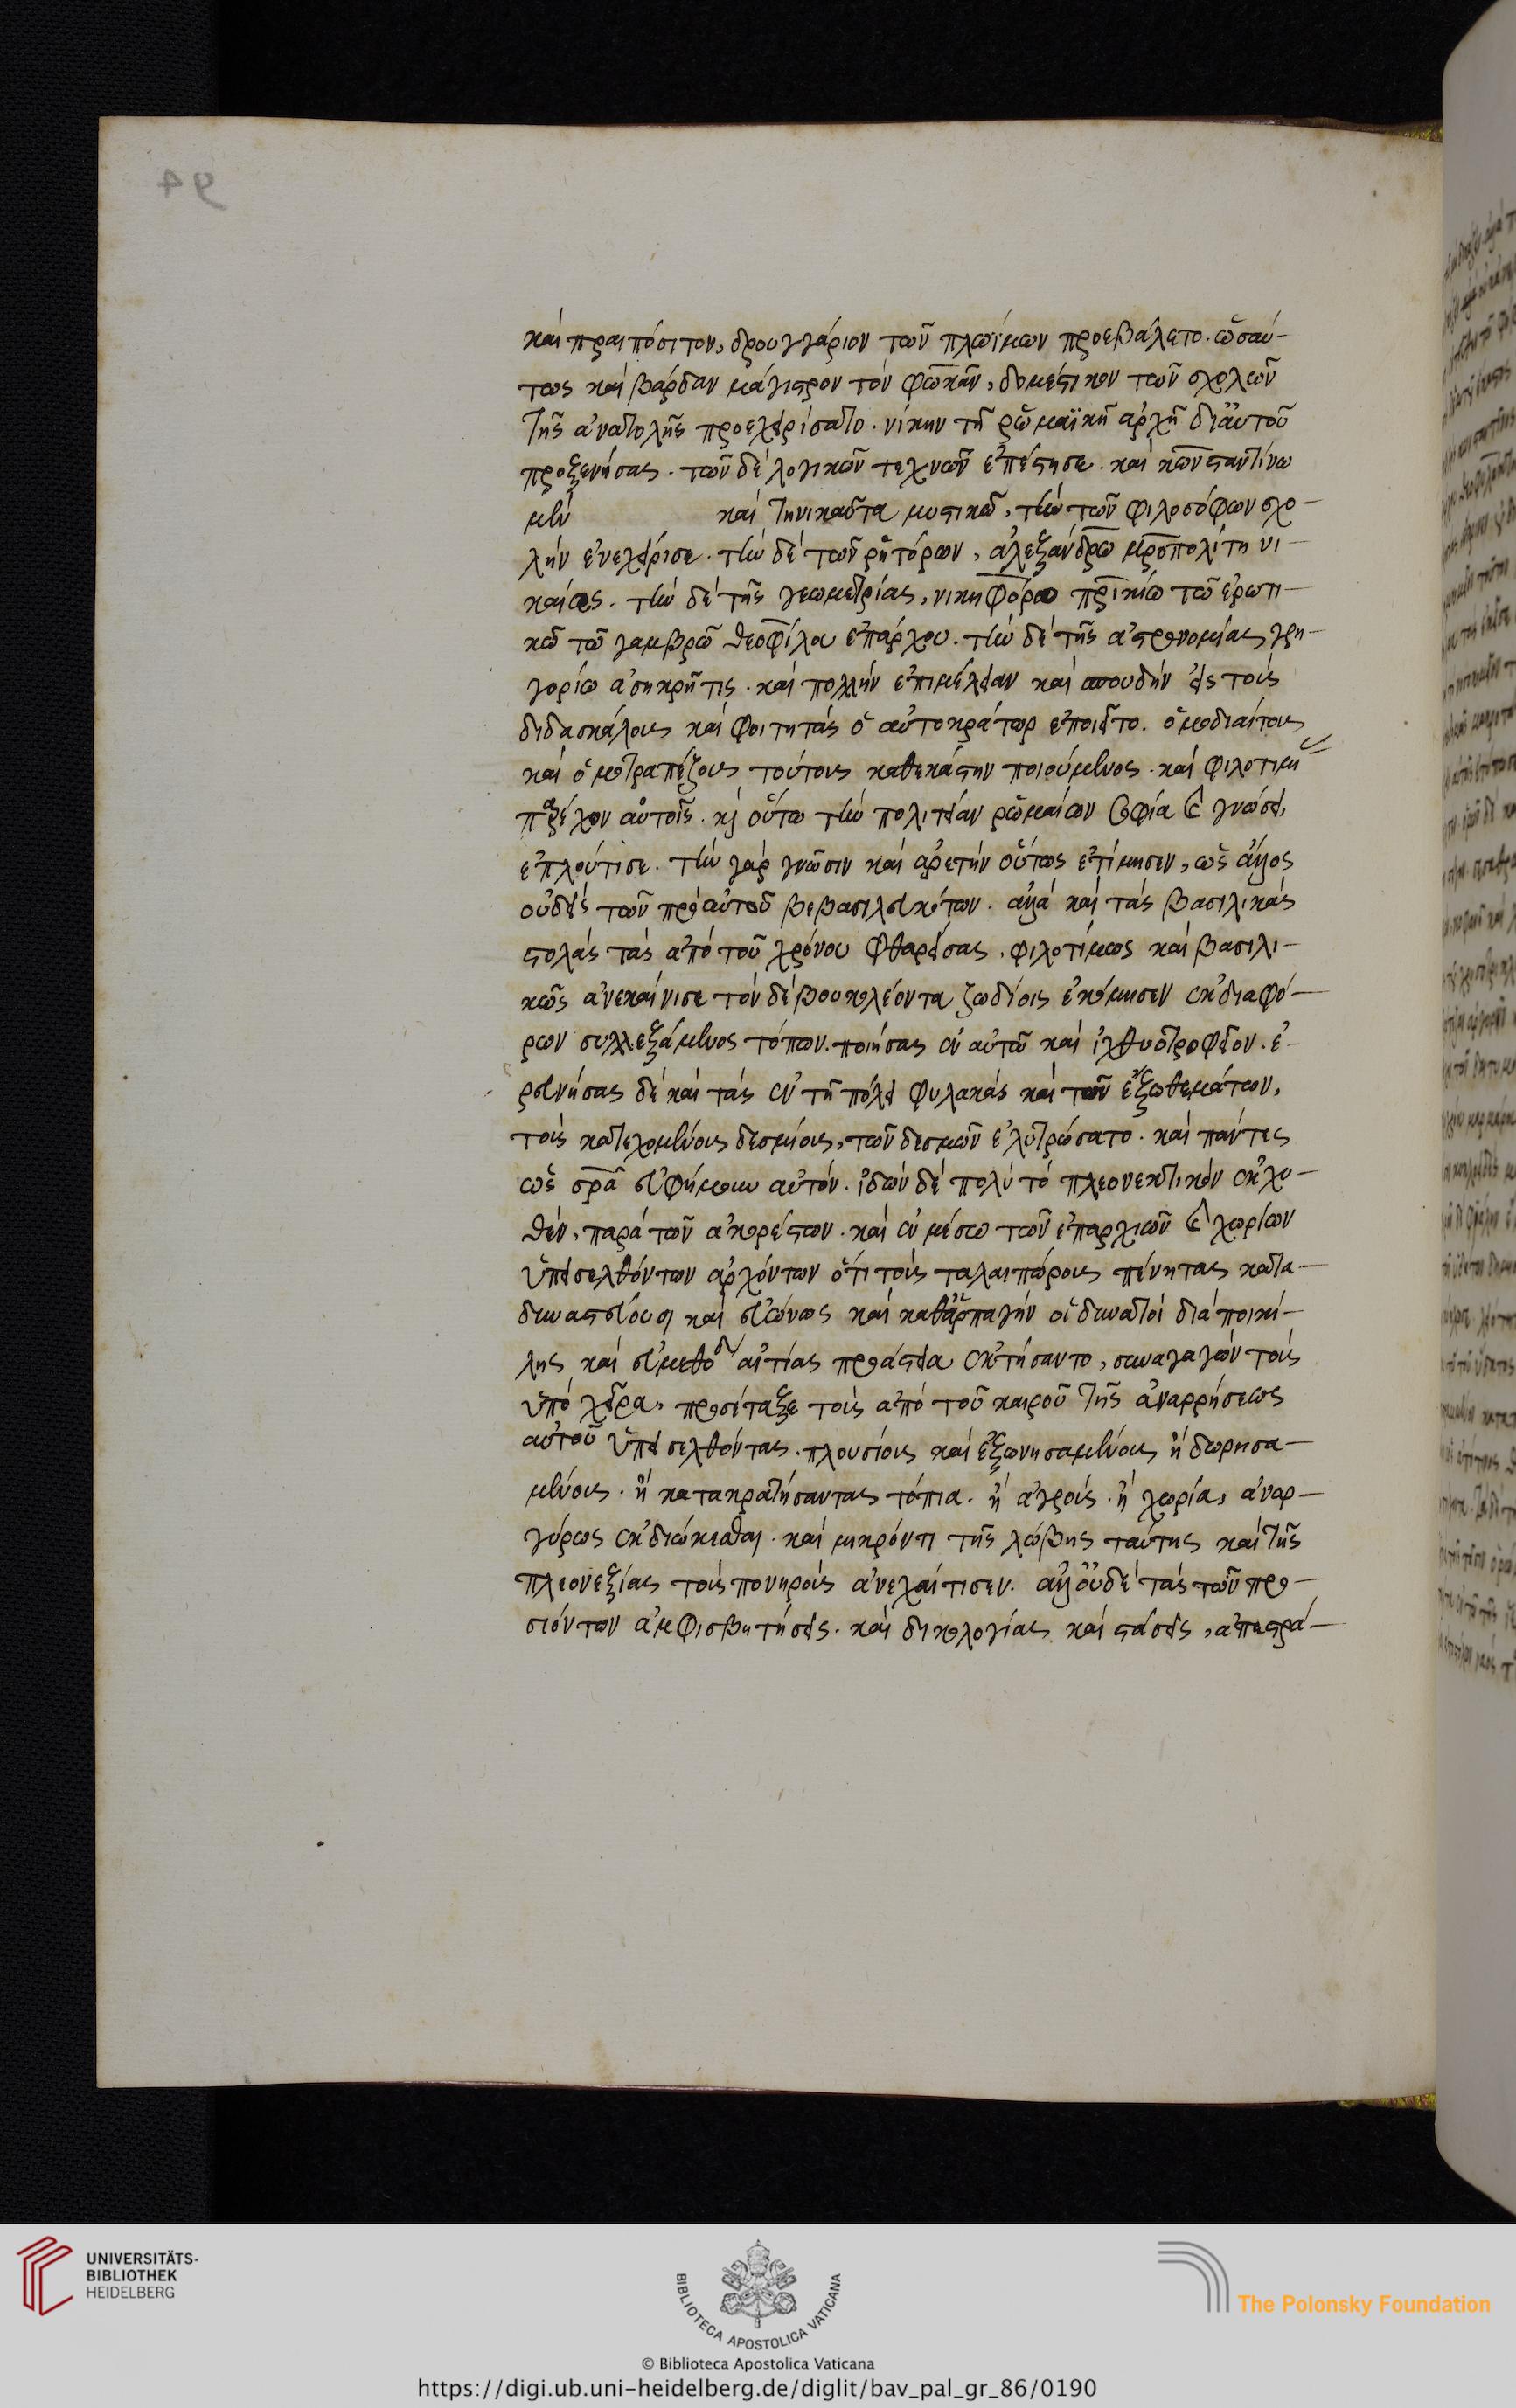 94
καὶ πραιπόσιτον, δρουγγάριον τῶν πλωΐμων προεβάλετο. ὡσαύ-
τως καὶ βάρδαν μάγιστρον τὸν φωκᾶν, δομέστικον τῶν σχολῶν
τῆς ἀνατολῆς προεχειρίσατο. νίκην τῇ ῥωμαϊκῇ ἀρχῇ δι αὐτοῦ
προξενήσας. τῶν δὲ λογικῶν τεχνῶν ἐπέστησε. καὶ κωνσταντίνω
μὲν καὶ τηνικαῦτα μυστικῶ, τὴν τῶν φιλοσόφων σχο-
λὴν ἐνεχείρισε. τὴν δὲ τῶν ῥητόρων, ἀλεξάνδρω μροπολίτη νι-
καίας. τὴν δὲ τῆς γεωμετρίας, νικηφόρω πρικίω τῶ ἐρωτι-
κῶ τῶ γαμβρῶ θεοφίλου ἐπάρχου. τὴν δὲ τῆς ἀστρονομίας γρη-
γορίω ἀσηκρῆτις. καὶ πολλὴν ἐπιμέλειαν καὶ σπουδὴν εἰς τοὺς
διδασκάλους καὶ φοιτητὰς ὁ αὐτοκράτωρ ἐποιεῖτο. ὁμοδιαίτους
καὶ ὁμοτραπέζους τούτους καθεκάστην ποιούμενος. καὶ φιλοτιμη
παρέχων αὐτοῖς. κὶ οὕτω τὴν πολιτείαν ῥωμαίων σοφία καὶ γνώσει,
ἐπλούτισε. τὴν γὰρ γνῶσιν καὶ ἀρετὴν οὕτως ἐτίμησεν, ὡς ἄλλος
οὐδεὶς τῶν πρὸ αὐτοῦ βεβασιλευκότων. ἀλλὰ καὶ τὰς βασιλικὰς
στολὰς τὰς ἀπὸ τοῦ χρόνου φθαρείσας, φιλοτίμως καὶ βασιλι-
κῶς ἀνεκαίνισε τὸν δὲ βουκολέοντα ζωδίοις ἐκόμησεν ἐκ διαφό-
ρων συλλεξάμενος τόπων. ποιήσας ἐν αὐτῶ καὶ ἰχθυοτροφεῖον. ἐ-
ρευνήσας δὲ καὶ τὰς ἐν τῇ πόλει φυλακὰς καὶ τῶν ἔξω θεμάτων,
τοὺς κατεχομένους δεσμίους, τῶν δεσμῶν ἐλυτρώσατο. καὶ πάντες
ὡς σρα εὐφήμουν αὐτόν. ἰδὼν δὲ πολὺ τὸ πλεονεκτικὸν ἐκχυ-
θὲν, παρὰ τῶν ἀκορέστων. καὶ ἐν μέσω τῶν ἐπαρχιῶν καὶ χωρίων
ὑπεισελθόντων ἀρχόντων ὅτι τοὺς ταλαιπώρους πένητας κατα-
δυναστεύουσι καὶ εὐώνως καὶ καθ ἁρπαγὴν οἱ δυνατοὶ διὰ ποικί-
λης καὶ εὐμεθόδου αἰτίας προάστεια ἐκτήσαντο, συναγαγὼν τοὺς
ὑπὸ χεῖρα, προσέταξε τοὺς ἀπὸ τοῦ καιροῦ τῆς ἀναρρήσεως
αὐτοῦ ὑπεισελθόντας. πλουσίους καὶ ἐξωνησαμένους ἢ δωρησα-
μένους. ἢ κατακρατήσαντας τόπια. ἢ ἀγροὺς. ἢ χωρία, ἀναρ-
γύρως ἐκδιώκεσθαι. καὶ μικρόν τι τῆς λώβης ταύτης καὶ τῆς
πλεονεξίας τοὺς πονηροὺς ἀνεχαίτισεν. ἀλλ οὐδὲ τὰς τῶν προ-
σιόντων ἀμφισβητήσεις. καὶ δικολογίας καὶ στάσεις, ἀπεστρά-
UNIVERSITÄTS-
BIBLIOTHEK
HEIDELBERG
BIBLIOTECA APOSTOLICA VATICANA
The Polonsky Foundation
© Biblioteca Apostolica Vaticana
https://digi.ub.uni-heidelberg.de/diglit/bav_pal_gr_86/0190